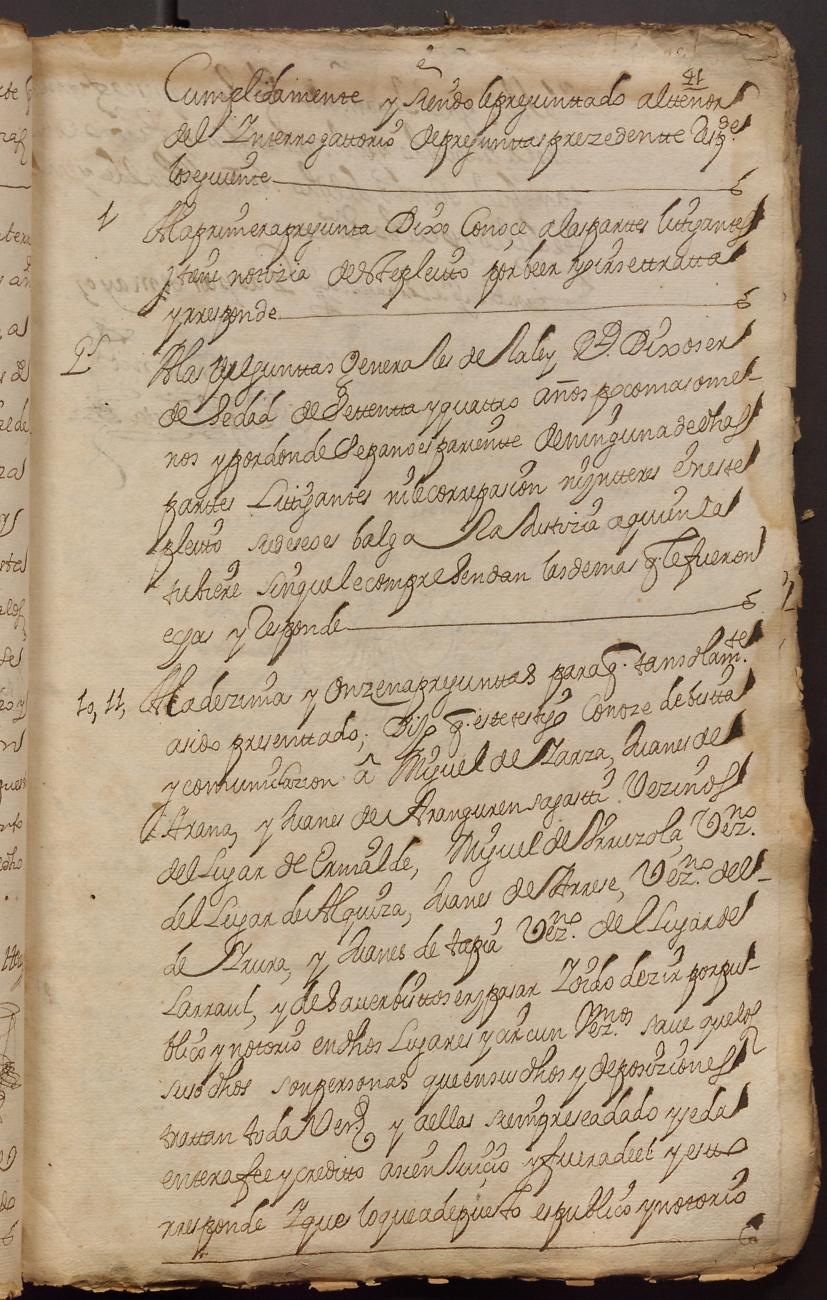 41
Cumplidamente y siendo lepreguntado altenor
del Interrogattorio depreguntas prezedentte
losiguiente
1 Alaprimerapregunta Dixo Conoce alaspartes litigantes
ytiene notizia destepleito porber
yrresponde
Alas preguntas Generales de laley, Dixoser
de hedad de Settentta yquattro años pocomasome-
nos ypordonde Sepanoes pariente deningunadedhas
partes Litigantes nilecorrepasion niyntteres eneste
pleito sudeseoes balga la Justizia aquienla
tubiere sinquelecomprehendan lasdemas q. lefueron
y Responde
10, 11, Aladezima y Onzenapreguntas paraq. tansolamte.
asido presenttado; Dijo q. estetestigo Conoze debistta
ycomunicazion â Miguel de Zarza, Juanes de
Arana, y Juanes de Arangurensagasti Vezinos
delLugar de Ermialde, Miguel de Vrruzola, Vezno.
del Lugar de Alquiza, Juanes de Arrese, Vezno. del
de Yrura, y Juanes de tapia Vezno. del Lugarde
Larraul, y de Saverbisttos enjpasar Zoido dezir porpu-
blico ynotorio endhos Lugares yarcun Vezos. save quelos
susodhos sonpersonas queensusdhos ydeposiziones
trattan toda Verd. y aellas siempreseadado yseda
enterafee ycreditto asien Juicio yfueradeel yestto
rresponde Zque loqueadepuesto espublico ynotorio